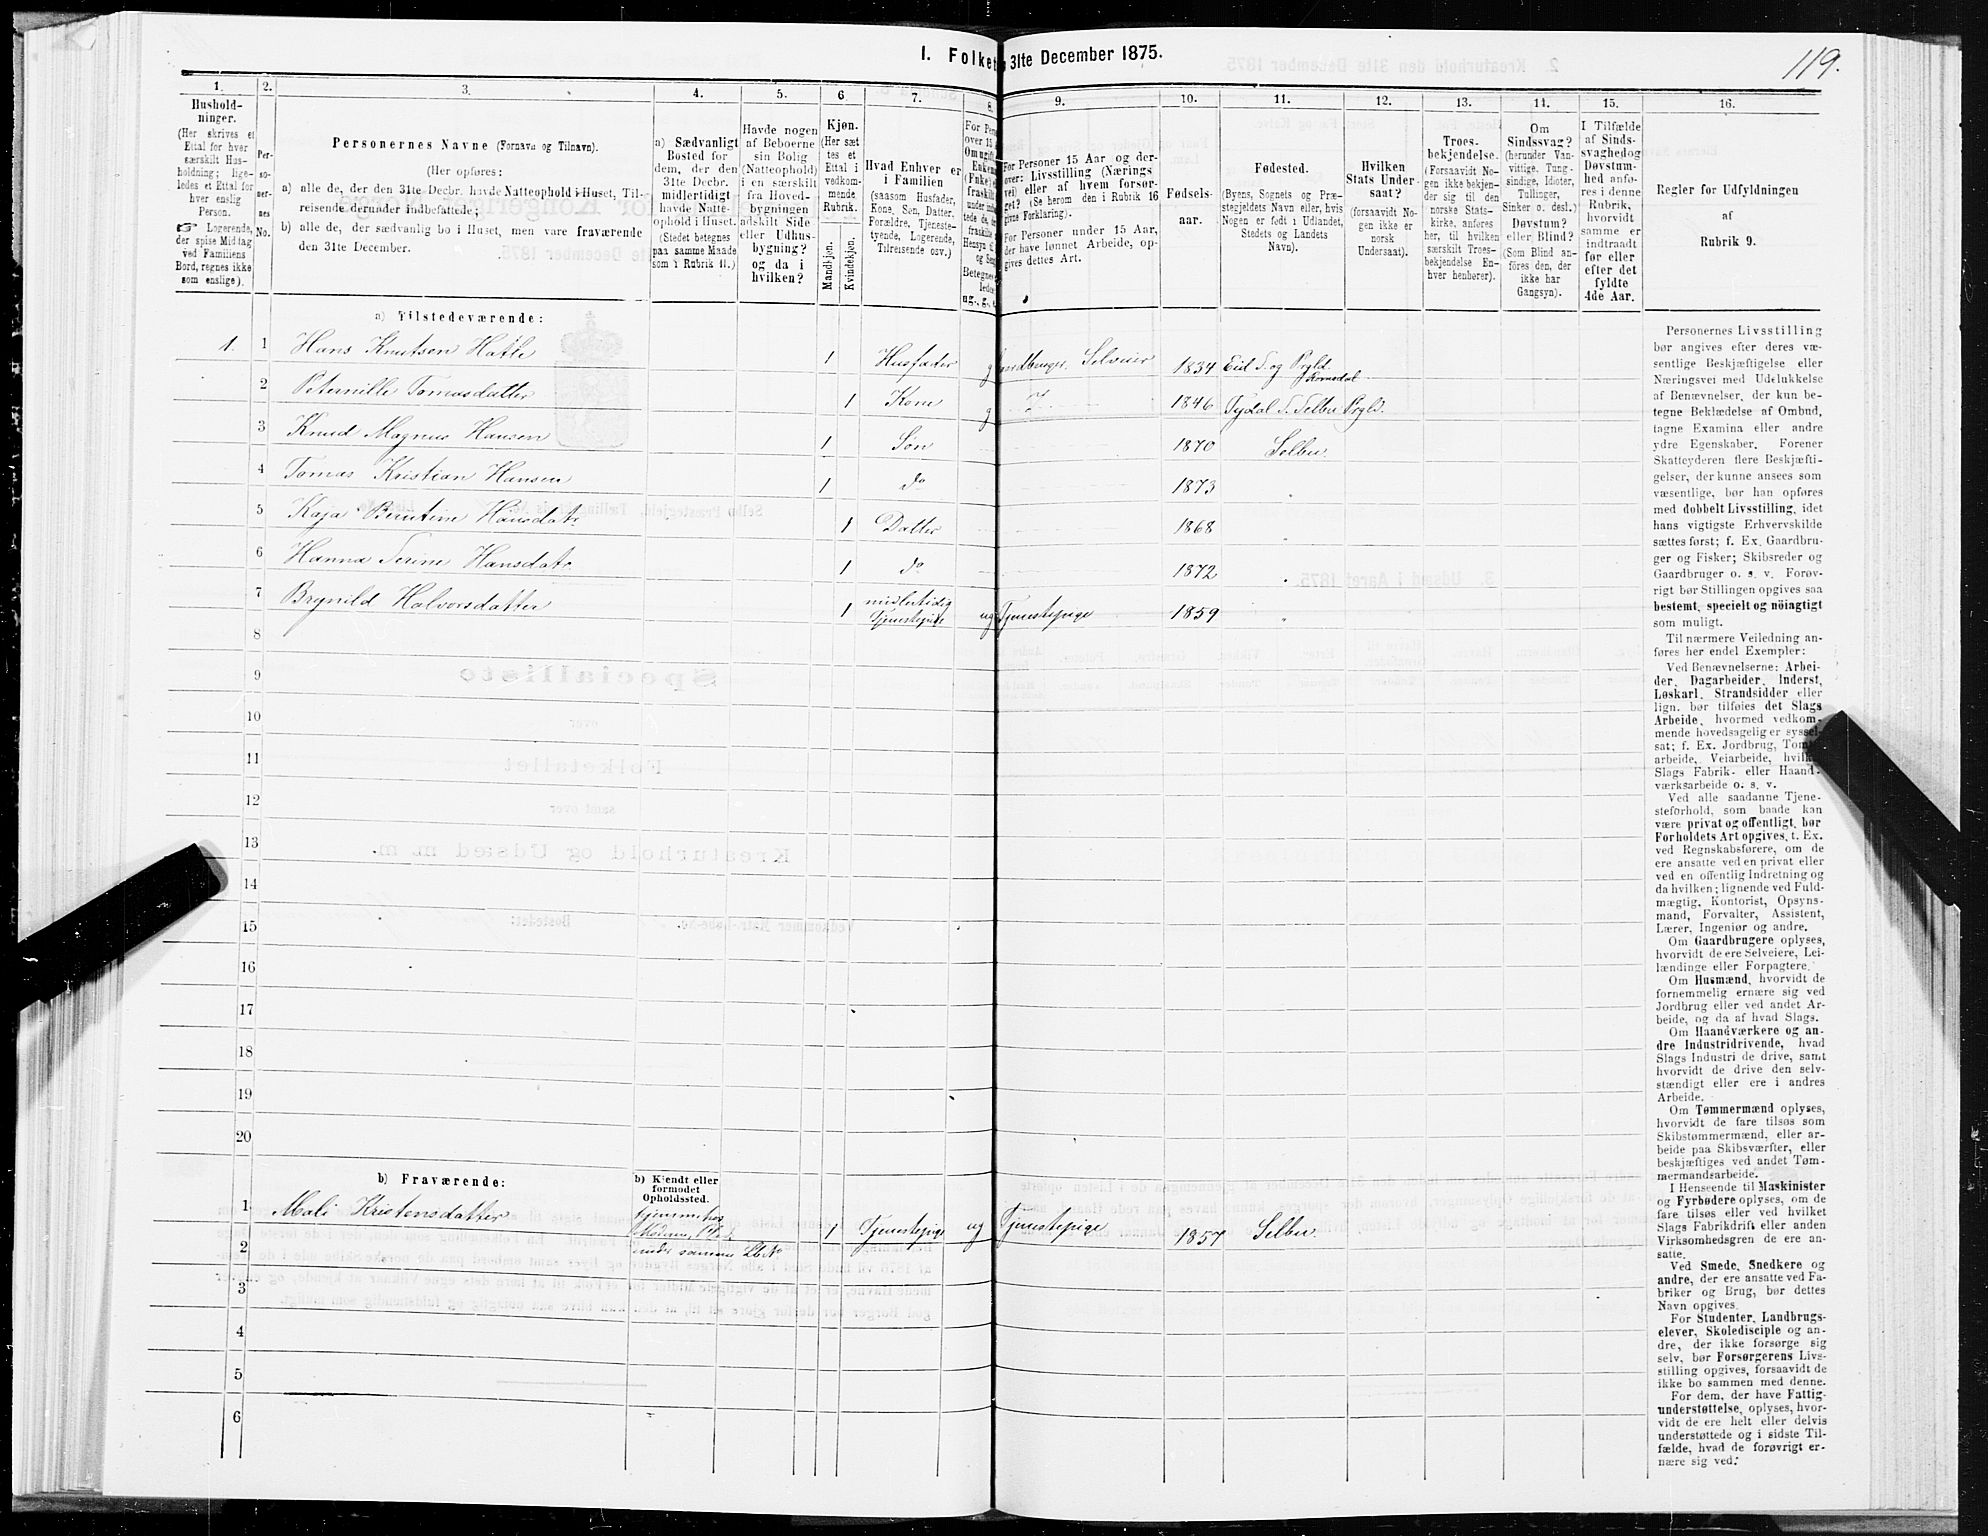 119.
I. Folket
31te December 1875.
1.
2.
3.
4.
5.
6.
7.
8.
9.
10.
11.
12.
13.
14.
15.
16.
Hushold-
ninger.
(Her skrives et
Ettal for hver
særskilt Hus-
holdning; lige-
ledes et Ettal for
hver enslig
Person.
☞ Logerende,
der spise Middag
ved Familiens
Bord, regnes ikke
som enslige).
Per-
so-
ner-
nes
No.
Personernes Navne (Fornavn og Tilnavn).
(Her opføres:
a) alle de, der den 31te Decbr. havde Natteophold i Huset, Til-
reisende derunder indbefattede;
b) alle de, der sædvanlig bo i Huset, men vare fraværende
den 31te December.
a) Sædvanligt
Bosted for
dem, der den
31te Decbr.
midlertidigt
havde Natte-
ophold i Huset.
(Stedet betegnes
paa samme Maade
som i Rubrik 11.)
Havde nogen
af Beboerne
sin Bolig
(Natteophold)
i en særskilt
fra Hoved-
bygningen
adskilt Side
eller Udhus-
bygning?
og da i
hvilken?
Kjøn.
(Her sæt
tes et
Ettal i
vedkom-
mende
Rubrik.
Mandkjøn.
Kvindekjøn.
Hvad Enhver er
i Familien
(saasom Husfader,
Kone, Søn, Datter,
Forældre, Tjeneste-
tyende, Logerende,
Tilreisende osv.)
For Personer 15 Aar og der-
over: Livsstilling (Nærings
vei) eller af hvem forsør-
get? (Se herom den i Rubrik 16
givne Forklaring).
For Personer under 15 Aar,
der have lønnet Arbeide, op-
gives dettes Art.
Fødsels-
aar.
Fødested.
(Byens, Sognets og Præ-
stegjeldets Navn eller, hvis
Nogen er født i Udlandet,
Stedets og Landets
Navn).
Hvilken
Stats Under-
saat?
(forsaavidt No-
gen ikke er
norsk
Undersaat).
Troes-
bekjendelse.
(Forsaavidt No-
gen ikke bekjen-
der sig til den
norske Stats-
kirke, anføres
her, til hvilken
særskilt Troes-
bekjendelse En-
hver henhører).
Om
Sindssvag?
(herunder Van-
vittige, Tung-
sindige, Idioter,
Tullinger,
Sinker o. desl.)
Døvstum?
eller Blind?
(Som Blind an-
føres den, der
ikke har
Gangsyn).
I Tilfælde
af Sinds-
svaghed og
Døvstum-
hed anfø-
res i denne
Rubrik,
hvorvidt
samme er
indtraadt
før eller
efter det
fyldte
4de Aar.
Regler for Udfyldningen
af
Rubrik 9.
a) Tilstedeværende:
1. 1 Hans Knutsen Hatle 1 Husfader g Selveier 1834 Eid S. og Prgld. Romsdal
2 Peternille Tomasdatter 1 Kone g 1846 Tydal S. Selbu Prgld.
3 Knud Magnus Hansen 1 Søn 1870 Selbu
4 Tomas Kristian Hansen 1 do 1873 "
5 Kaja Berntine Hansdatr. 1 Datter 1868 "
6 Hanna Serine Hansdatr. 1 do 1872 "
7 Brynild Halvorsdatter 1 midlertidig Tjenestepige ug Tjenestepige 1859 "
8
9
10
11
12
13
14
15
16
17
18
19
20
b) Fraværende:
b) Kjendt eller
formodet
Opholdssted.
1 Mali Kristensdatter 1 Tjenestepige ug Tjenestepige 1857 Selbu.
under samme
2
3
4
5
6
Personernes Livsstilling
bør angives efter deres væ-
sentlige Beskjæftigelse eller
Næringsvei med Udelukkelse
af Benævnelser, der kun be-
tegne Beklædelse af Ombud,
tagne Examina eller andre
ydre Egenskaber. Forener
Skatteyderen flere Beskjæfti-
gelser, der kunne ansees som
væsentlige, bør han opføres
med dobbelt Livsstilling, idet
hans vigtigste Erhvervskilde
sættes først; f. Ex. Gaardbru-
ger og Fisker; Skibsreder og
Gaardbruger o. s. v. Forøv-
rigt bør Stillingen opgives saa
bestemt, specielt og nöiagtigt
som muligt.
Til nærmere Veiledning an-
føres her endel Exempler:
Ved Benævnelserne: Arbei-
der, Dagarbeider, Inderst,
Løskarl, Strandsidder eller
lign. bør tilføies det Slags
Arbeide, hvormed vedkom-
mende hovedsagelig er syssel-
sat; f. Ex. Jordbrug, Tomt-
arbeide, Veiarbeide, hvilket
Slags Fabrik- eller Haand-
værksarbeide o. s. v.
Ved alle saadanne Tjene-
steforhold, som baade kan
være privat og offentligt, bør
Forholdets Art opgives, t. Ex.
ved Regnskabsførere, om de
ere ansatte ved en privat eller
ved en offentlig Indretning og
da hvilken; lignende ved Fuld-
mægtig, Kontorist, Opsyns-
mand, Forvalter, Assistent,
Lærer, Ingeniør og andre.
Om Gaardbrugere oplyses,
hvorvidt de ere Selveiere, Lei-
lændinge eller Forpagtere.
Om Husmænd, hvorvidt de
fornemmelig ernære sig ved
Jordbrug eller ved andet Ar-
beide, og da af hvad Slags.
Om Haandværkere og an-
dre Industridrivende, hvad
Slags Industri de drive, samt
hvorvidt de drive den selv-
stændigt eller ere i andres
Arbeide.
Om Tømmermænd oplyses,
hvorvidt de fare tilsøs som
Skibstømmermænd, eller ar-
beide paa Skibsværfter, eller
beskjæftiges ved andet Tøm-
mermandsarbeide.
I Henseende til Maskinister
og Fyrbødere oplyses, om de
fare tilsøs eller ved hvilket
Slags Fabrikdrift eller anden
Virksomhedsgren de ere an-
satte.
Ved Smede, Snedkere og
andre, der ere ansatte ved Fa-
briker og Brug, bør dettes
Navn opgives.
For Studenter, Landbrugs-
elever, Skoledisciple og an-
dre, der ikke forsørge sig
selv, bør Forsørgerens Livs-
stilling opgives, forsaavidt de
ikke bo sammen med denne.
For dem, der have Fattig-
understøttelse, oplyses, hvor-
vidt de ere helt eller delvis
understøttede og i sidste Til-
fælde, hvad de forøvrigt er-
nære sig ved.